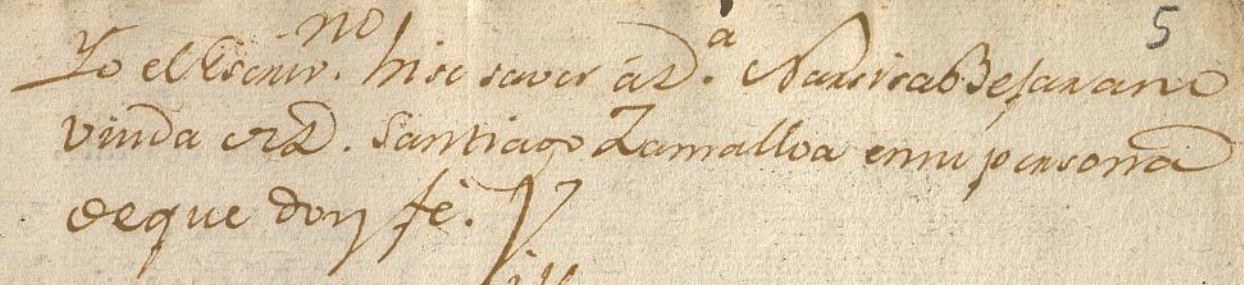 5
Yo el Escriv.no hise saver á D.a Narsisa Bejarano
viuda de D. Santiago Zamalloa en su persona
de que doy fé.